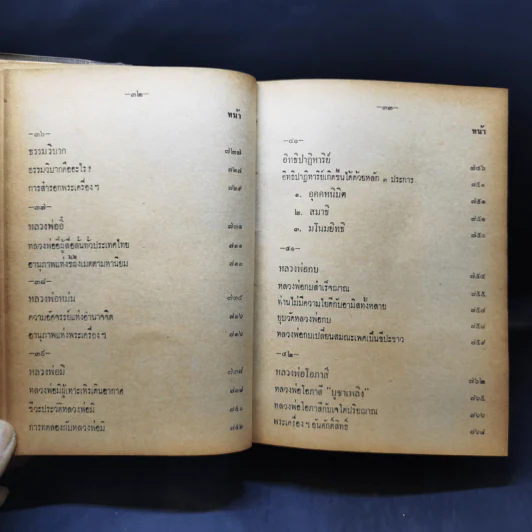 -๓๒-
หน้า
-๓๖-
ธรรมวิบาก ๗๒๗
ธรรมวิบากคืออะไร? ๗๒๘
การสำรอกพระเครื่อง ฯ ๗๒๙
-๓๗-
หลวงพ่ออี๋ ๗๓๑
หลวงพ่ออี๋ผู้ลือลั่นทั่วประเทศไทย ๗๓๑
อานุภาพแห่งเมตตามหานิยม
-๓๘-
หลวงพ่อหมั่น ๗๓๕
ความอัศจรรย์แห่งอำนาจจิต ๗๓๖
อานุภาพแห่งพระเครื่อง ฯ
-๓๙-
หลวงพ่อมี ๗๓๘
หลวงพ่อมีผู้เหาะเหินเดินอากาศ
ชีวะประวัติหลวงพ่อมี ๗๔๐
การทดลองกับหลวงพ่อมี ๗๔๒
-๓๓-
หน้า
-๔๐-
อิทธิปาฏิหาริย์ ๗๔๖
อิทธิปาฏิหาริย์เกิดขึ้นได้ด้วยหลัก ๓ ประการ
๑. อุคคหนิมิต ๗๕๑
๒. สมาธิ ๗๕๑
๓. มโนมยิทธิ
-๔๑-
หลวงพ่อกบ ๗๕๔
หลวงพ่อกบสำเร็จญาณ ๗๕๕
ท่านไม่มีความใยดีกับอามิสทั้งหลาย
ยุบวัดหลวงพ่อกบ ๗๕๘
หลวงพ่อกบเปลี่ยนสมณะเพศเป็นชีปะขาว ๗๕๙
-๔๒-
หลวงพ่อโอภาสี ๗๖๒
หลวงพ่อโอภาสี "บูชาเพลิง" ๗๖๕
หลวงพ่อโอภาสีกับเจโตปริยญาณ ๗๖๖
พระเครื่อง ฯ อันศักดิ์สิทธิ์ ๗๖๘